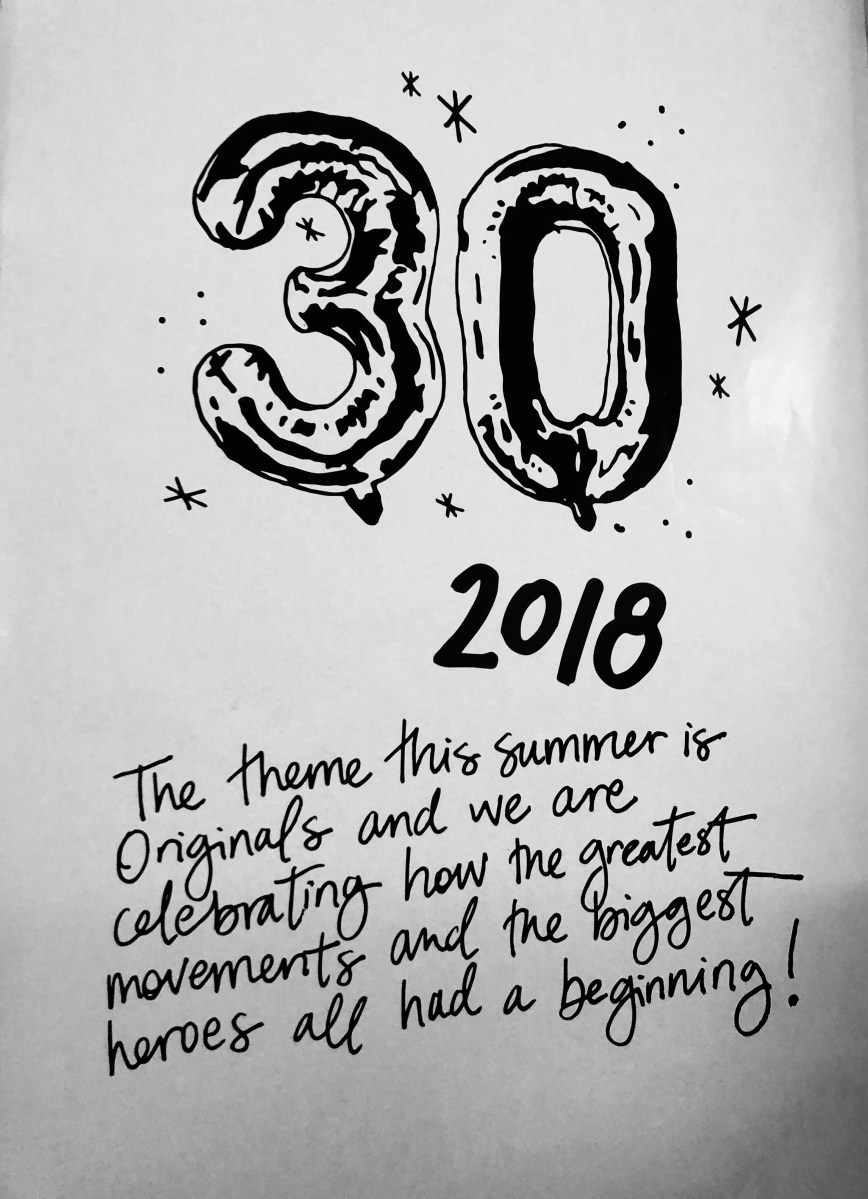 30
2018
The theme this summer is
Originals and we are
celebrating how the greatest
movements and the biggest
heroes all had a beginning!